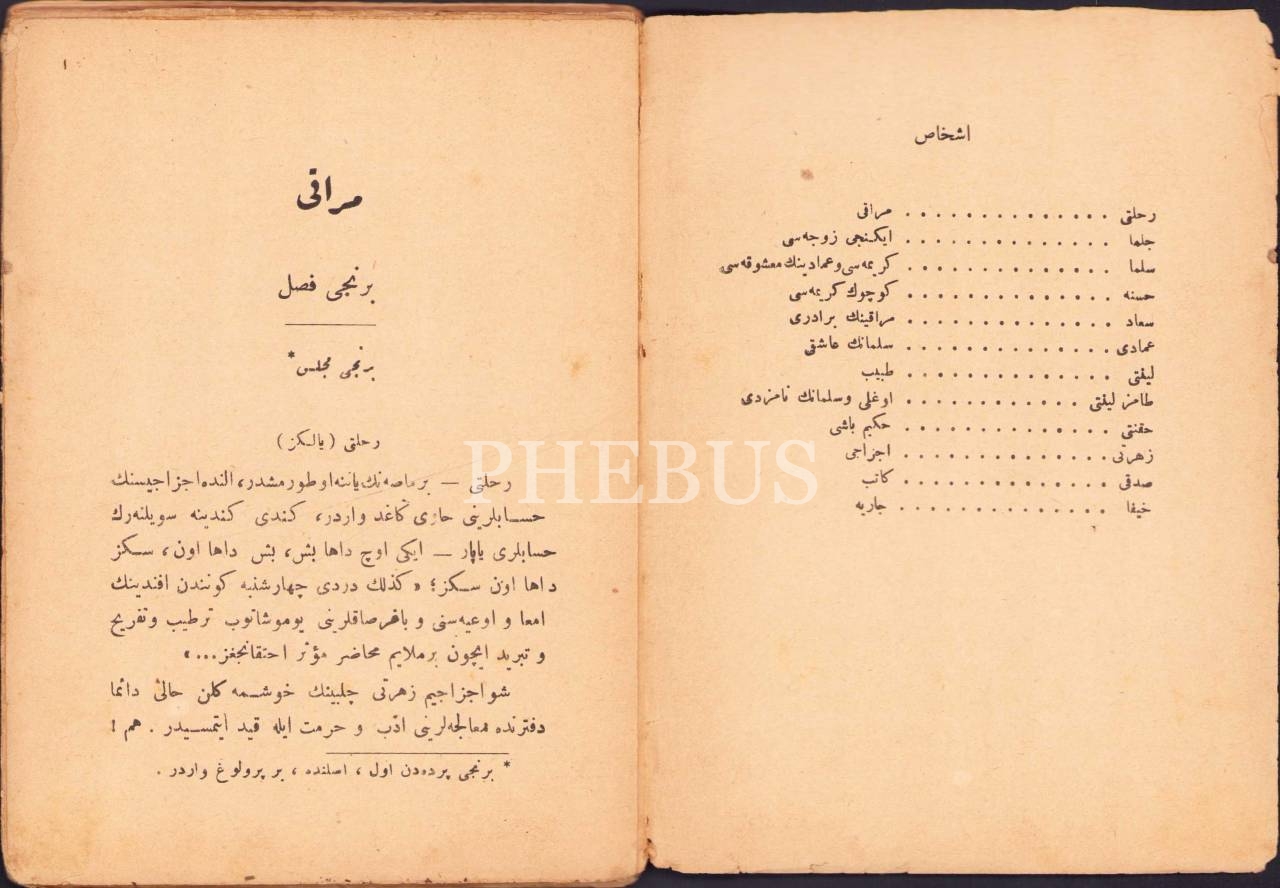 اشخاص
رحلتی . . . . . . . . . . . . . . مراقی
جلما . . . . . . . . . . . . . . ایکنجی زوجه‌سی
سلما . . . . . . . . . . . . . . کریمه‌سی و عمادینك معشوقه‌سی
حسنه . . . . . . . . . . . . . . کوچوك کریمه‌سی
سعاد . . . . . . . . . . . . . . مراقینك برادری
عمادی . . . . . . . . . . . . . . سلمانك عاشقی
لیفتی . . . . . . . . . . . . . . طبیب
طامز لیفتی . . . . . . . . . . . . اوغلی و سلمانك نامزدی
حقنتی . . . . . . . . . . . . . . حکیم باشی
زهرتی . . . . . . . . . . . . . . اجزاجی
صدقی . . . . . . . . . . . . . . کاتب
خیفا . . . . . . . . . . . . . . جاریه
١
مراقی
برنجی فصل
برنجی مجلس*
رحلتی (یالـکز)
رحلتی — بر ماصه‌نك یاننه اوطورمشدر، النده اجزاجیسنك
حسابلرینی حاوی کاغد واردر، کندی کندینه سویلنه‌رك
حسابلری یاپار — ایکی اوچ داها بش، بش داها اون، سکز
داها اون سکز؛ « کذلك دردی چهارشنبه کونندن افندینك
امعا و اوعیه‌سنی و باغرصاقلرینی یوموشاتوب ترطیب و تفریح
و تبرید ایچون بر ملایم محاضر مؤثر احتقانجغز... »
شو اجزاجیم زهرتی چلبینك خوشمه کلن حالی دائما
دفترنده معالجه‌لرینی ادب و حرمت ایله قید ایتمسیدر . هم !
* برنجی پرده‌دن اول ، اصلنده ، بر پرولوغ واردر .
PHEBUS